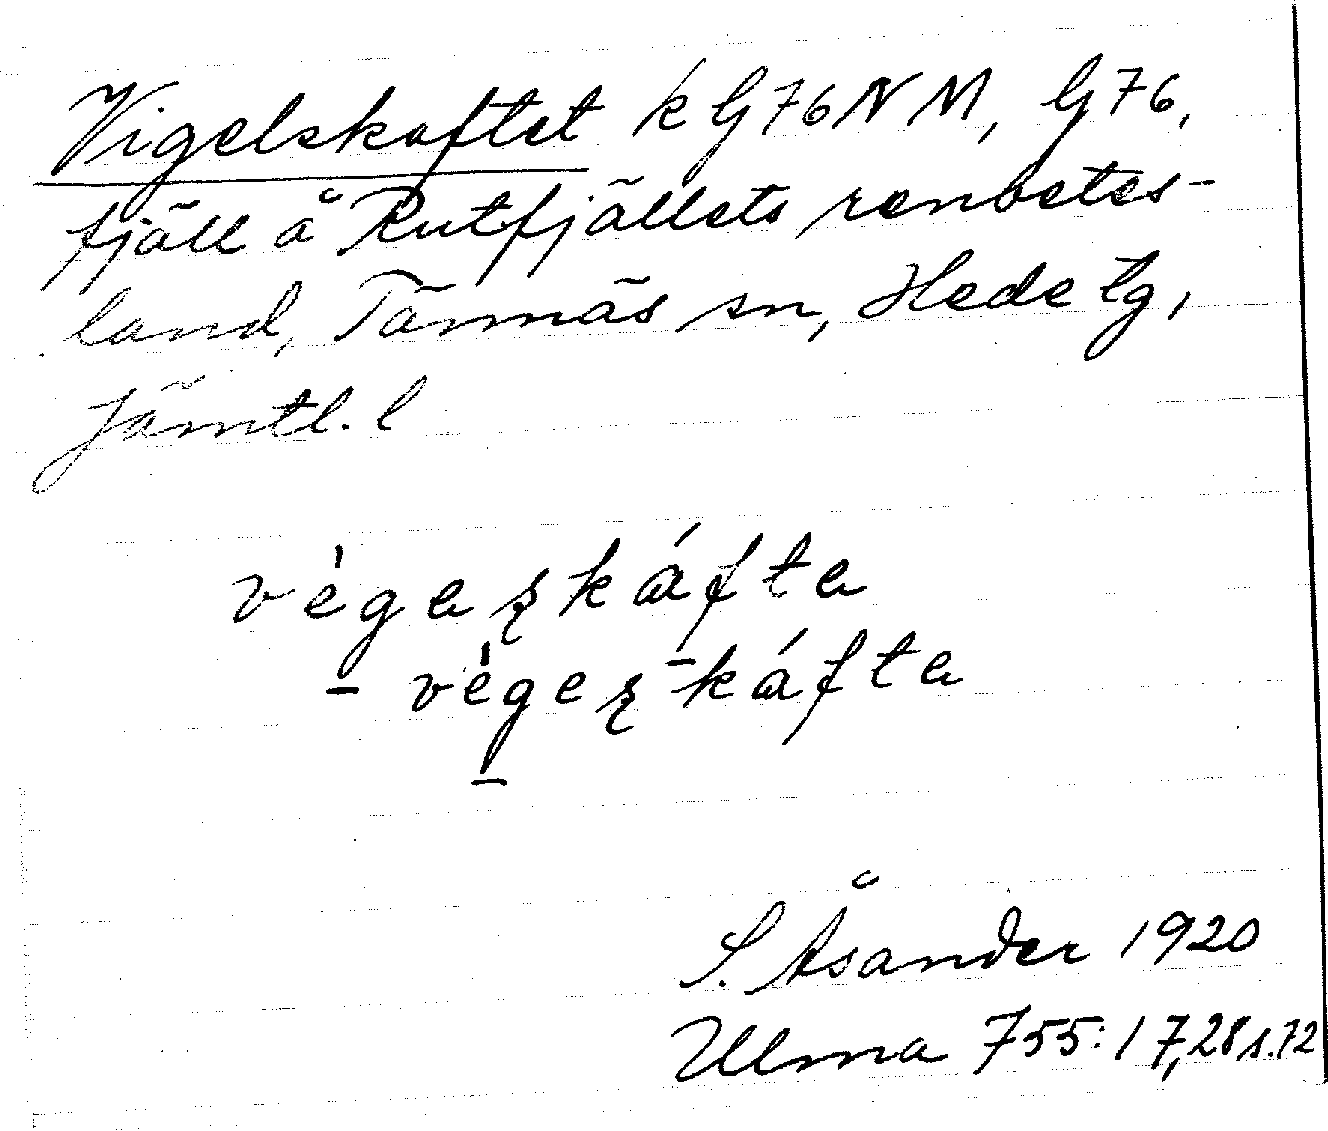 Vigelskaftet k G76NM, G76,
fjäll å Rutfjällets renbetes-
land, Tännäs sn, Hede tg,
Jämtl. l
végeʂkáfta
- végeʂkáfta
S. Åsander 1920
Ulma 755:17,28 s.72